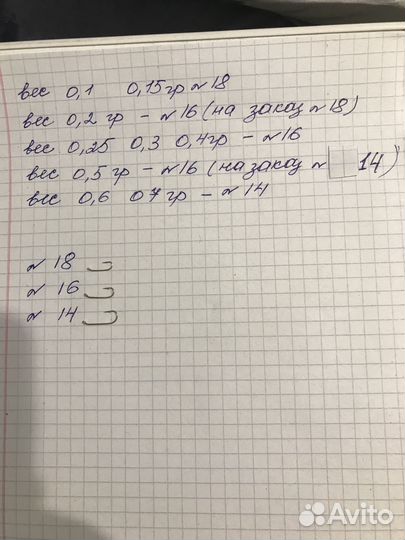 вес 0,1 0,15гр №18
вес 0,2 гр - №16 (на заказ №18)
вес 0,25 0,3 0,4гр - №16
вес 0,5 гр - №16 (на заказ № 14)
вес 0,6 07 гр - №14
№ 18
№ 16
№ 14
Avito